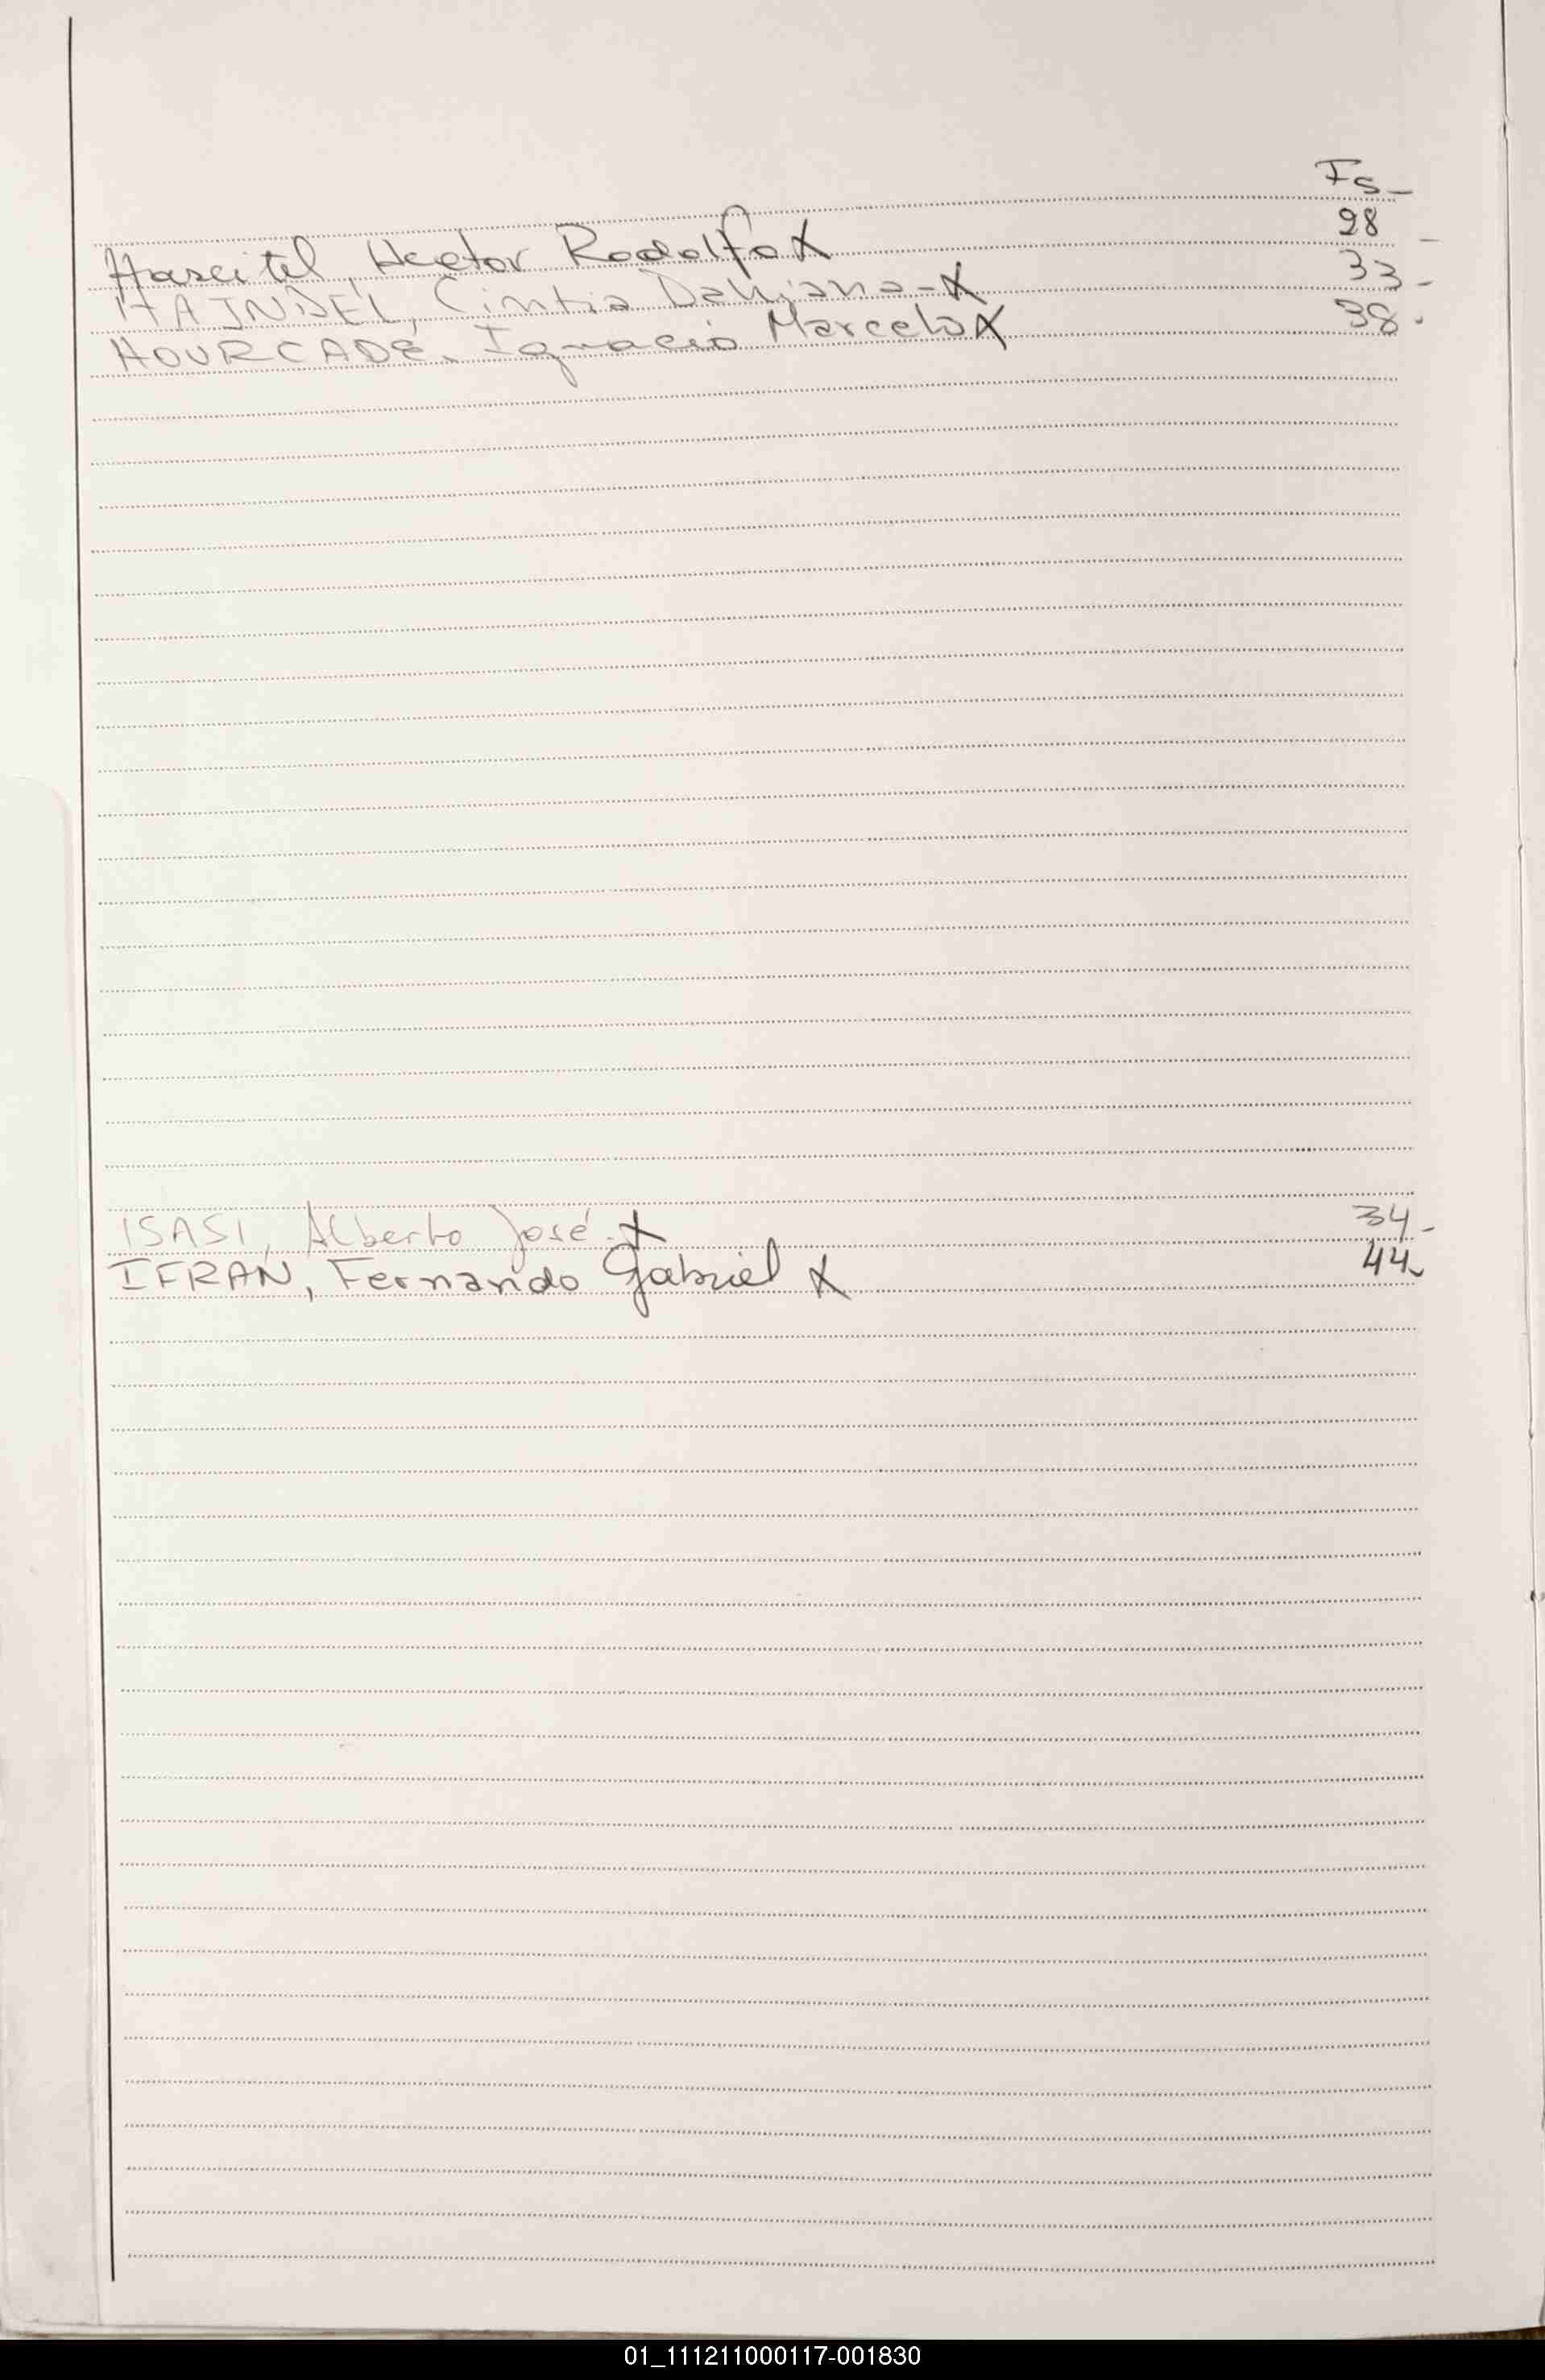 Fs-
Hascitel, Hector Rodolfo X 28 -
HAJNDEL, Cintia Dahiana - X 33 -
HOURCADE, Ignacio Marcelo X 38 -
ISASI, Alberto José - X 34 -
IFRAN, Fernando Gabriel X 44 -
01_111211000117-001830